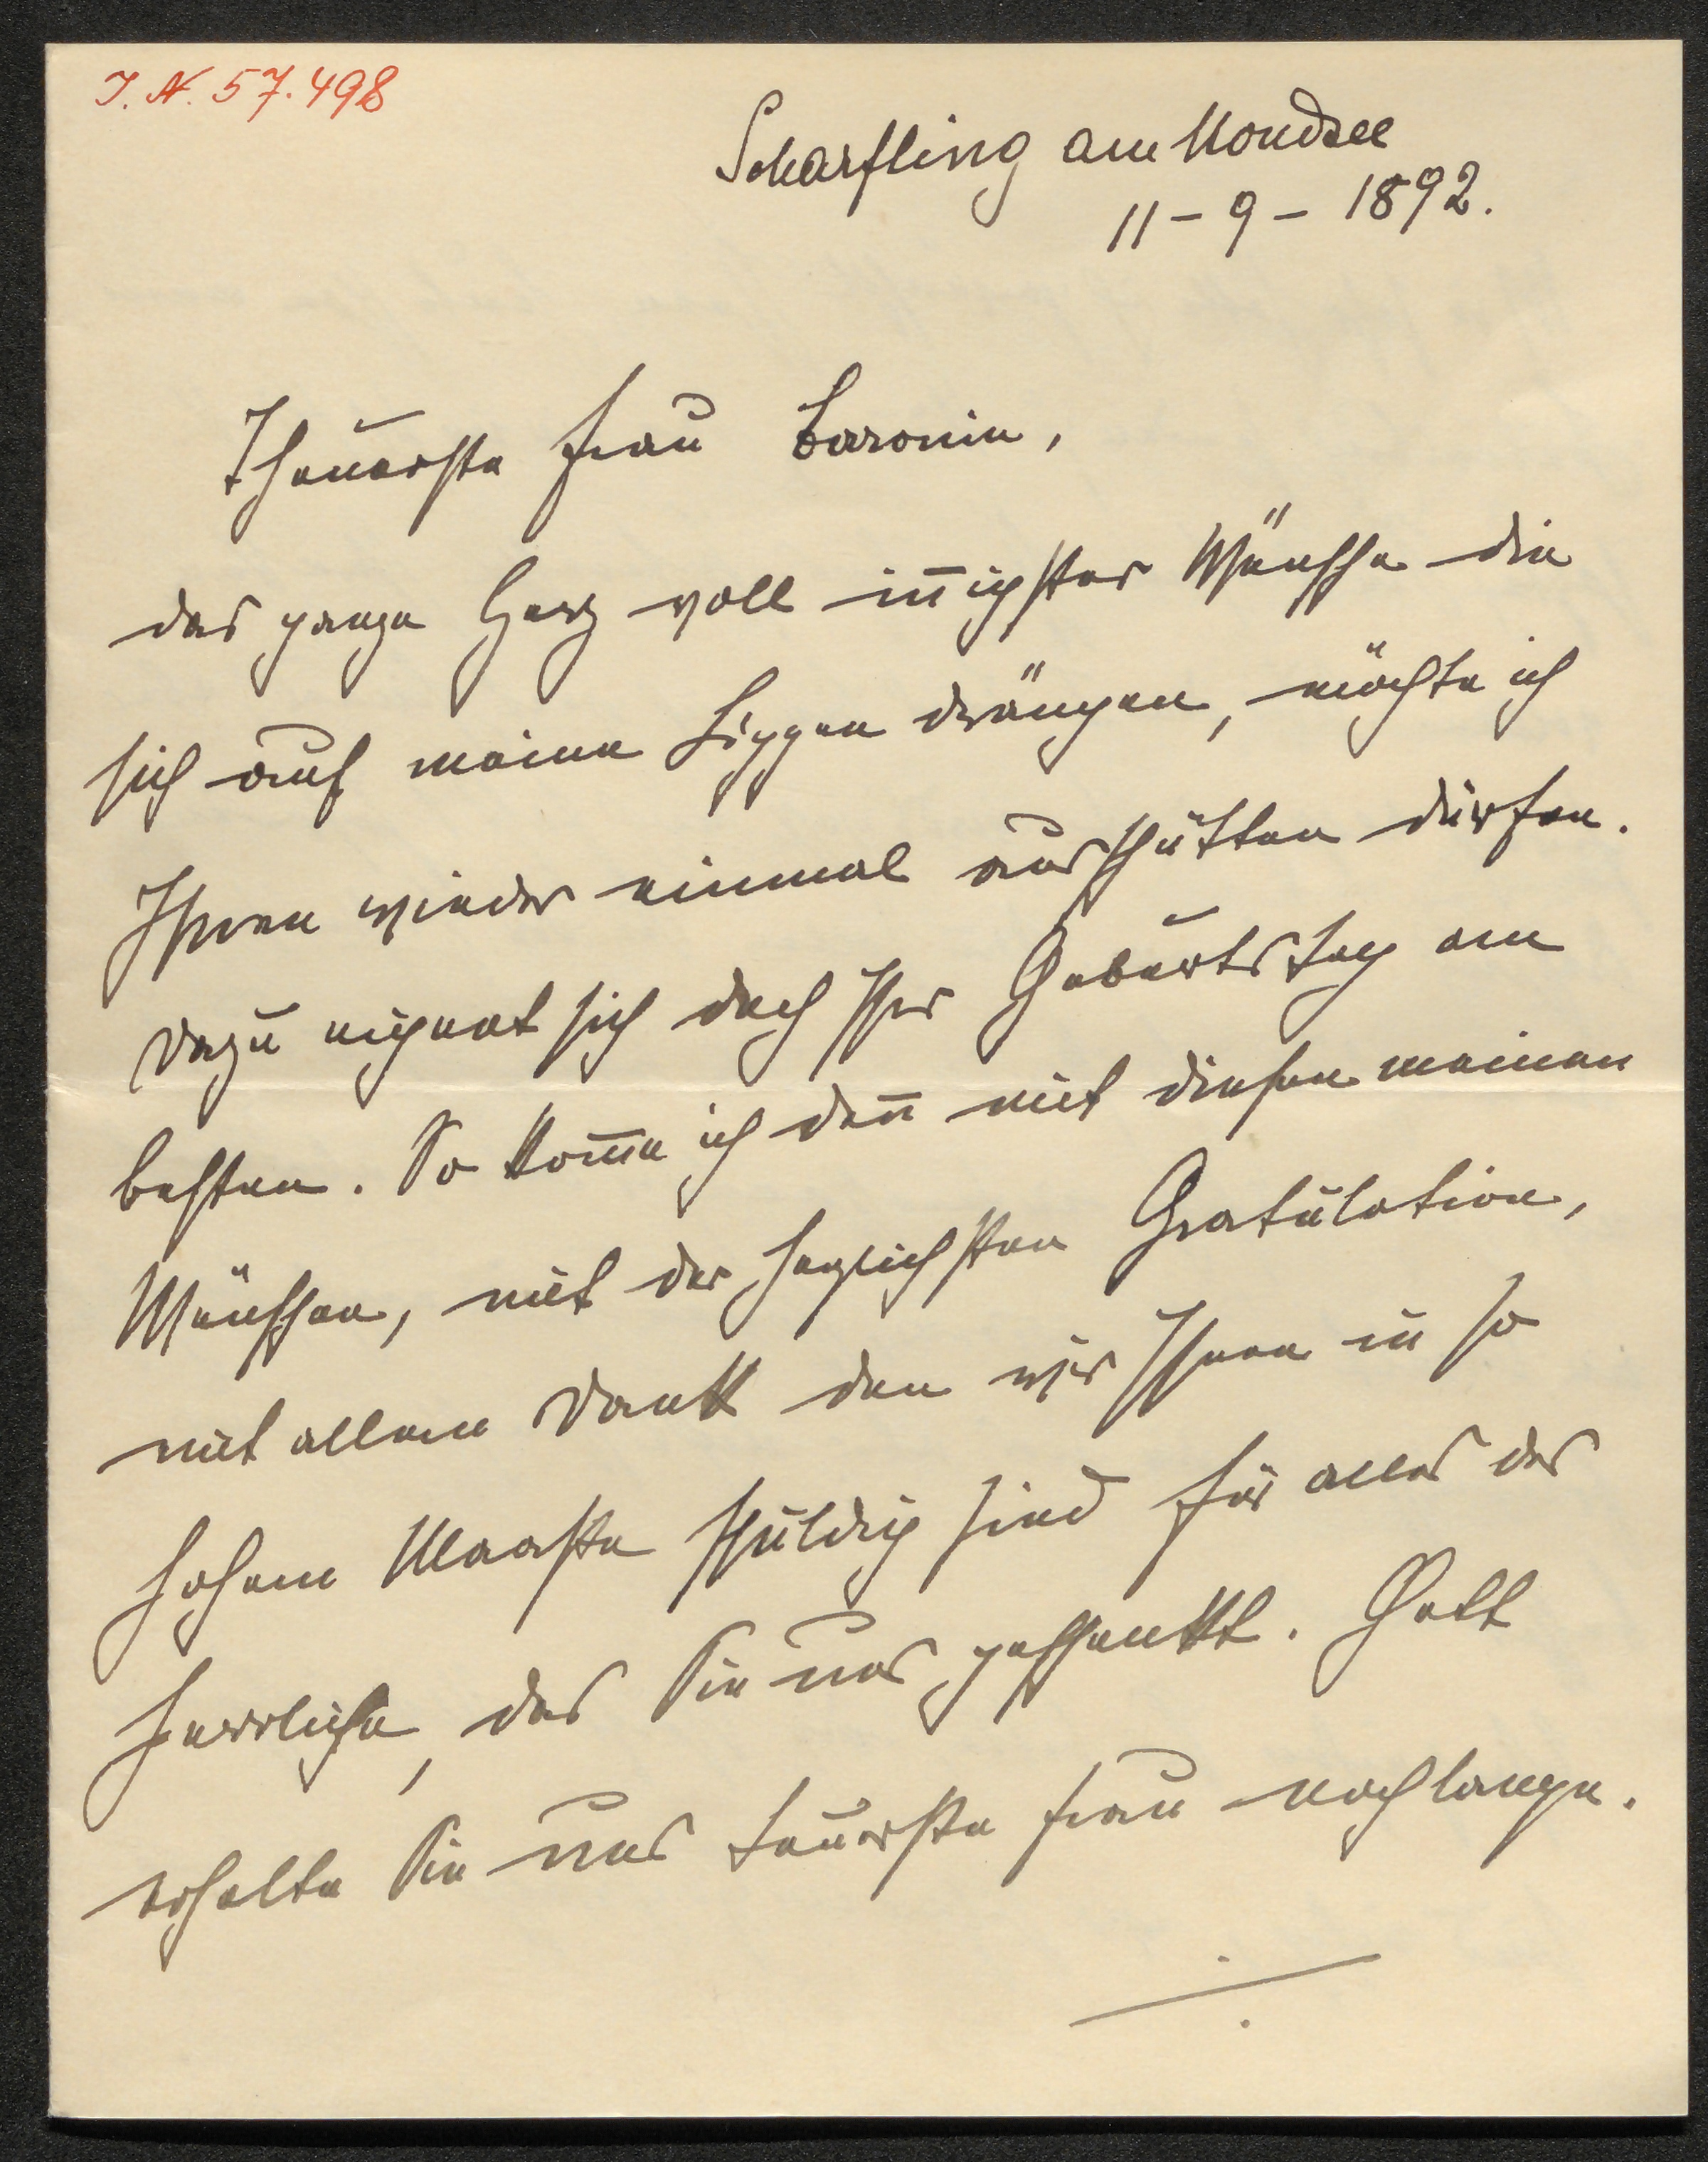 J. N. 57.498
Scharfling am Mondsee
11 - 9 - 1892.
Theuerste Frau Baronin,
das ganze Herz voll iñigster Wünsche die
sich auf meine Lippen drängen, möchte ich
Ihnen wieder einmal ausschütten dürfen.
Dazu eignet sich doch Ihr Geburtstag am
besten. So kom̄e ich deñ mit diesen meinen
Wünschen, mit der herzlichsten Gratulation,
mit allem Dank den wir Ihnen in so
hohem Maaße schuldig sind für alles das
herrliche, das Sie uns geschenkt. Gott
erhalte Sie uns teuerste Frau noch lange.